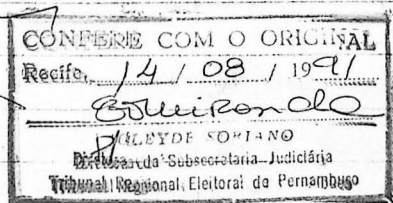 CONFERE COM O ORIGINAL
Recife, 14 / 08 / 1991
GLEYDE SORIANO
Diretora da Subsecretaria Judiciária
Tribunal Regional Eleitoral de Pernambuco